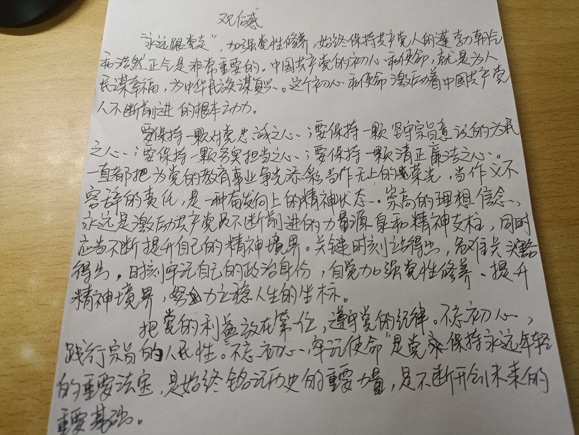 观后感
"永远跟党走",加强党性修养,始终保持共产党人的蓬勃朝气
和浩然正气是非常重要的。中国共产党的初心和使命,就是为人
民谋幸福,为中华民族谋复兴。这个初心和使命激励着中国共产党
人不断前进的根本动力。
要保持一颗对党忠诚之心;要保持一颗坚守宗旨意识的为民
之心;要保持一颗务实担当之心;要保持一颗清正廉洁之心。
一直都把为党的教育事业争光添彩当作无上的光荣,当作义不
容辞的责任,是一种奋发向上的精神状态。崇高的理想信念,
永远是激励共产党员不断前进的力量源泉和精神支柱,同时
应当不断提升自己的精神境界。关键时刻站得出,危难关头豁
得出,时刻牢记自己的政治身份,自觉加强党性修养、提升
精神境界,努力立稳人生的坐标。
把党的利益放在第一位,遵守党的纪律。不忘初心,
践行宗旨的人民性。"不忘初心、牢记使命"是党永保持永远年轻
的重要法宝,是始终铭记历史的重要力量,是不断开创未来的
重要基础。